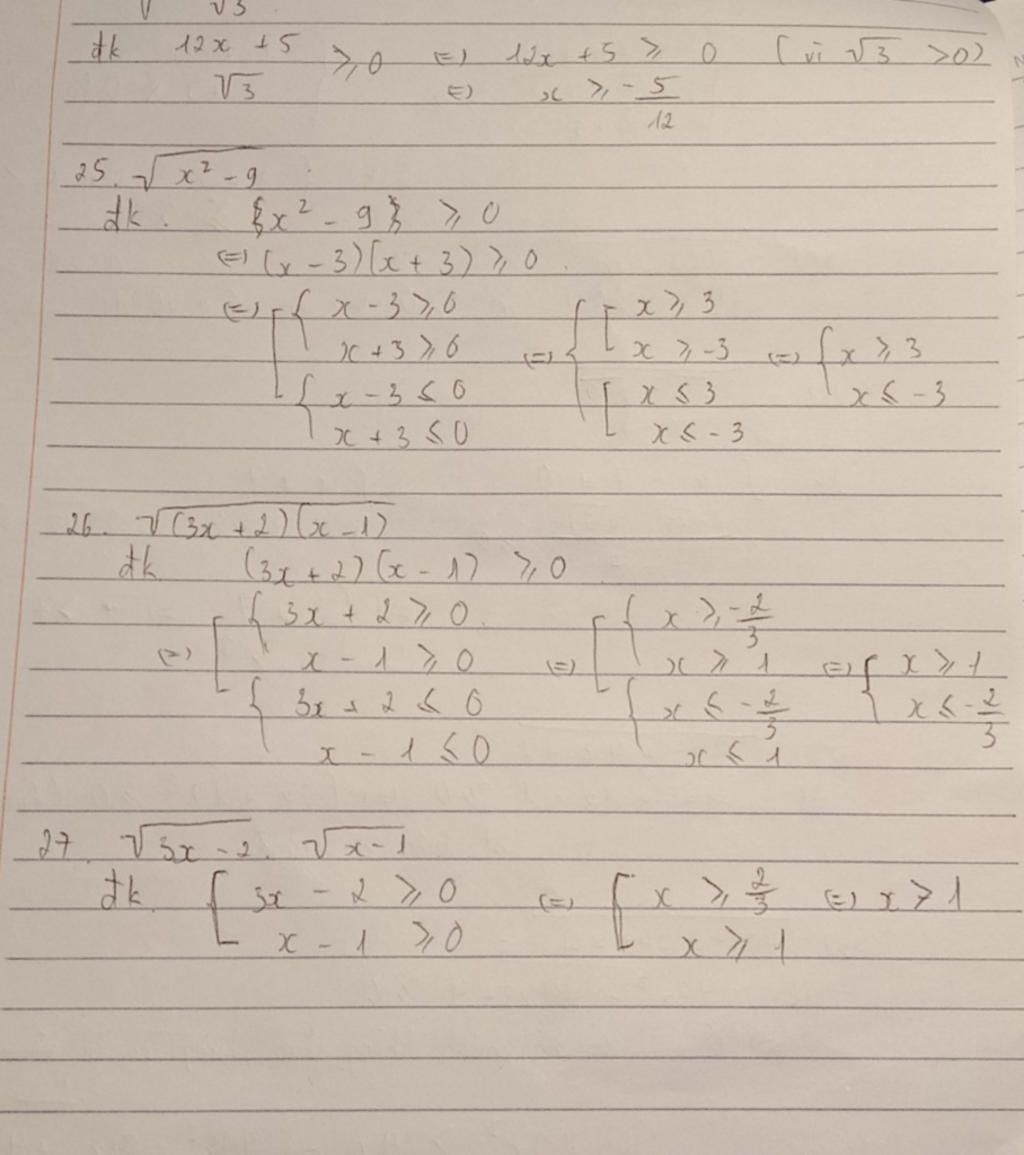 √3
đk 12x + 5 / √3 ⩾ 0 ⇔ 12x + 5 ⩾ 0 (vì √3 > 0)
⇔ x ⩾ - 5/12
25. √(x² - 9)
đk. {x² - 9} ⩾ 0
⇔ (x - 3)(x + 3) ⩾ 0.
⇔ [ { x - 3 ⩾ 0 ⇔ { [ x ⩾ 3
x + 3 ⩾ 0 x ⩾ -3 ⇔ { x ⩾ 3
{ x - 3 ⩽ 0 [ x ⩽ 3 x ⩽ -3
x + 3 ⩽ 0 x ⩽ -3
26. √((3x + 2)(x - 1))
đk (3x + 2)(x - 1) ⩾ 0
⇔ [ { 3x + 2 ⩾ 0. ⇔ [ { x ⩾ -2/3
x - 1 ⩾ 0 x ⩾ 1 ⇔ { x ⩾ 1
{ 3x + 2 ⩽ 0 { x ⩽ -2/3 x ⩽ -2/3
x - 1 ⩽ 0 x ⩽ 1
27. √(3x - 2). √(x - 1)
đk. [ 3x - 2 ⩾ 0 ⇔ [ x ⩾ 2/3 ⇔ x > 1
x - 1 ⩾ 0 x ⩾ 1